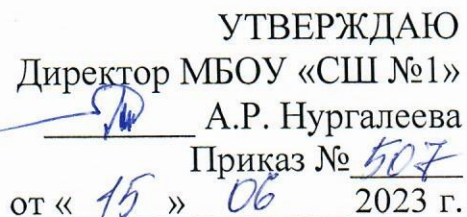 УТВЕРЖДАЮ
Директор МБОУ «СШ №1»
А.Р. Нургалеева
Приказ № 507
от « 15 » 06 2023 г.